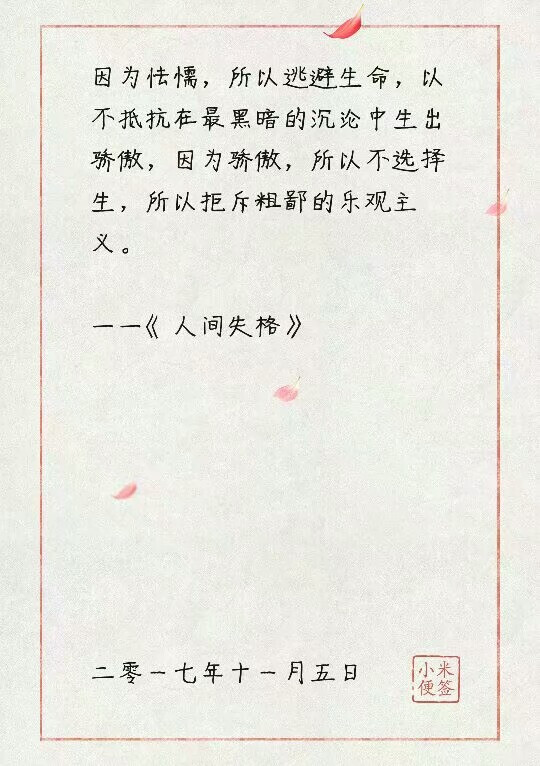 因为怯懦，所以逃避生命，以
不抵抗在最黑暗的沉沦中生出
骄傲，因为骄傲，所以不选择
生，所以拒斥粗鄙的乐观主
义。
一一《人间失格》
二零一七年十一月五日
小米
便签